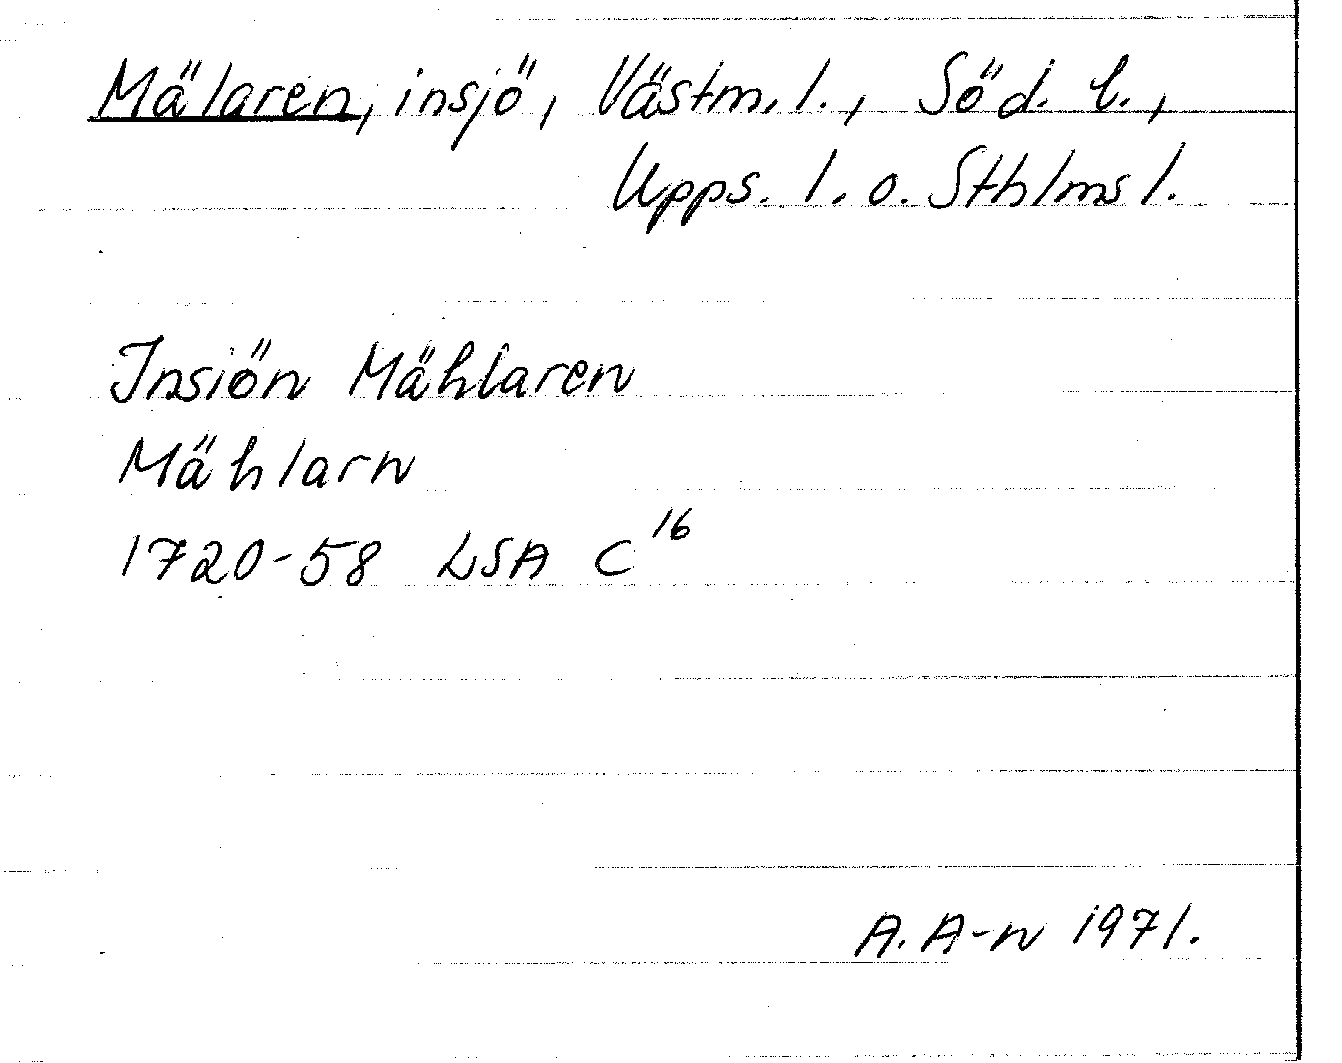 Mälaren, insjö, Västm. l., Söd. l.,
Upps. l. o. Sthlms l.
Insiön Mählaren
Mählarn
1720-58 LSA C¹⁶
A. A-n 1971.